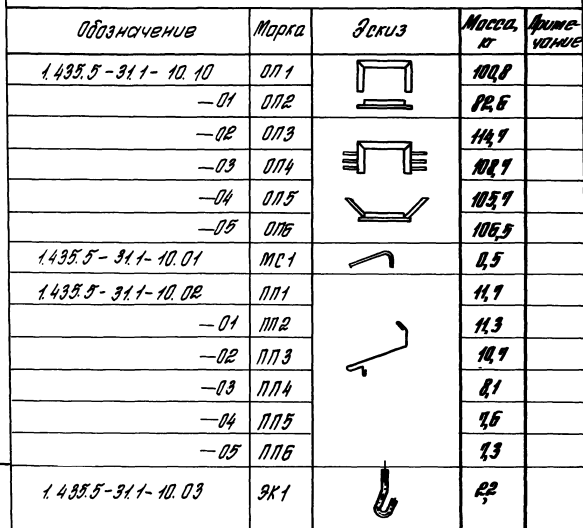 Обозначение Марка Эскиз Масса, кг Приме-чание
1.435.5-31.1-10.10 ОП1 100,8
-01 ОП2 82,6
-02 ОП3 114,7
-03 ОП4 108,7
-04 ОП5 105,7
-05 ОП6 106,5
1.435.5-31.1-10.01 МС1 0,5
1.435.5-31.1-10.02 ПП1 11,7
-01 ПП2 11,3
-02 ПП3 10,7
-03 ПП4 8,1
-04 ПП5 7,6
-05 ПП6 7,3
1.435.5-31.1-10.03 ЭК1 2,2